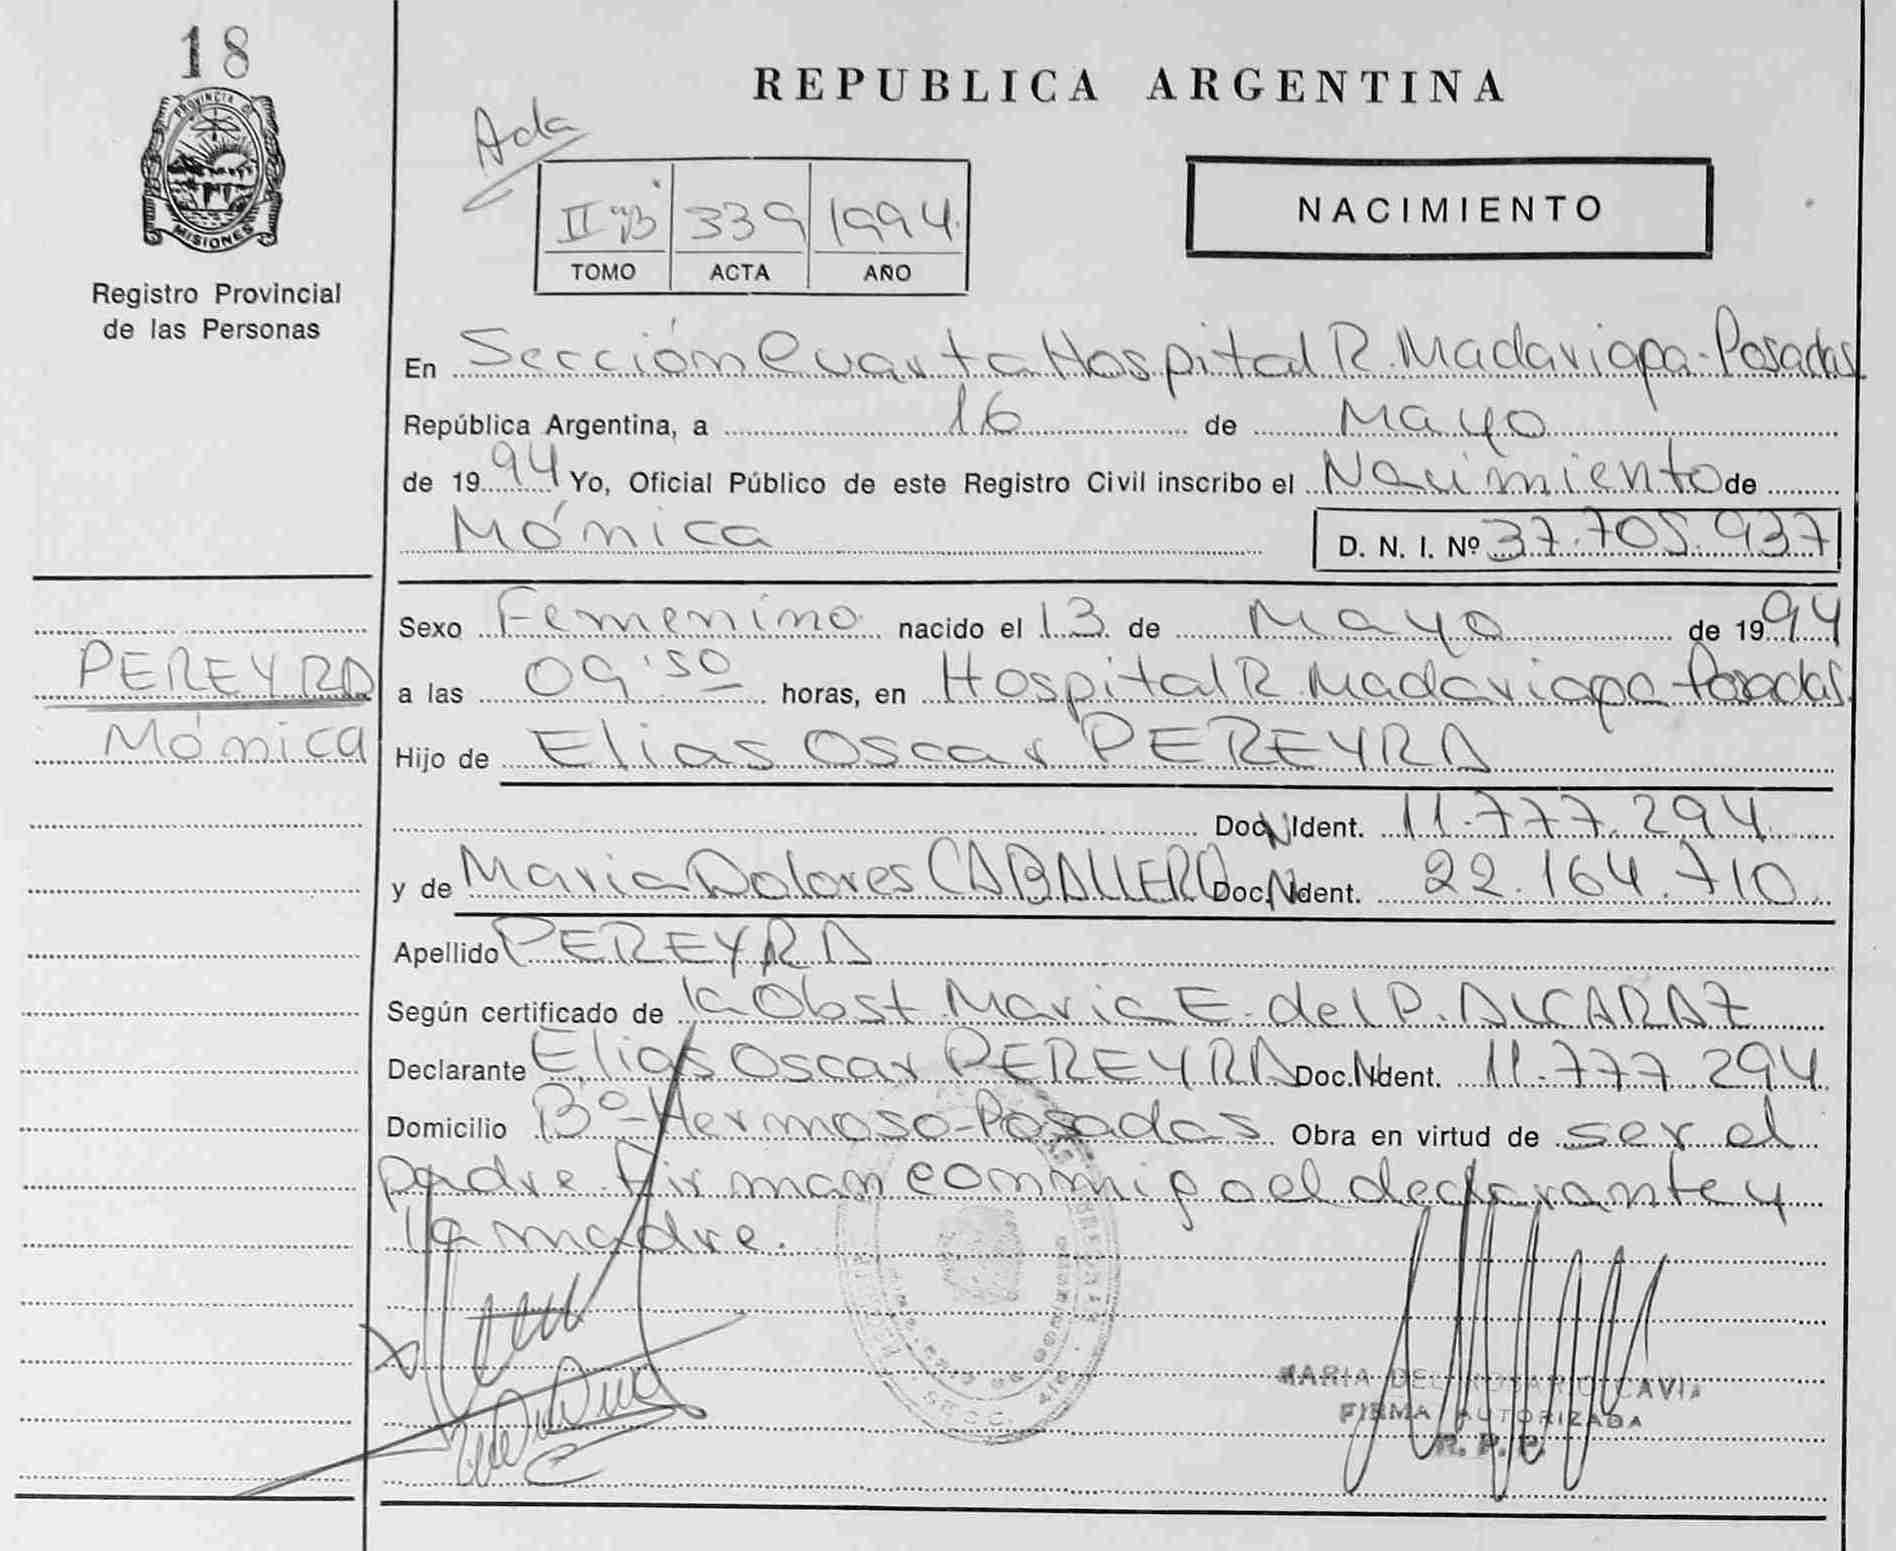 18
PROVINCIA D
MISIONES
Registro Provincial
de las Personas
REPUBLICA ARGENTINA
Ada
II "B" 339 1994.
TOMO ACTA AÑO
NACIMIENTO
En Sección Cuarta Hospital R. Madariaga - Posadas
República Argentina, a 16 de Mayo
de 1994 Yo, Oficial Público de este Registro Civil inscribo el Nacimiento de
Mónica D. N. I. Nº 37.705.937
Sexo Femenino nacido el 13 de Mayo de 1994
PEREYRA
a las 09'50 horas, en Hospital R. Madariaga Posadas.
Mónica
Hijo de Elias Oscar PEREYRA
Doc N Ident. 11.777.294
y de Maria Dolores CABALLERO Doc. N Ident. 22.164.710
Apellido PEREYRA
Según certificado de la Obst. Maria E. del P. ALCARAZ
Declarante Elias Oscar PEREYRA Doc. N Ident. 11.777.294
Domicilio Bº Hermoso - Posadas Obra en virtud de ser el
padre. Firman conmigo el declarante y
la madre.
MARIA DEL ROSARIO CAVIA
FIRMA AUTORIZADA
R. P. P.